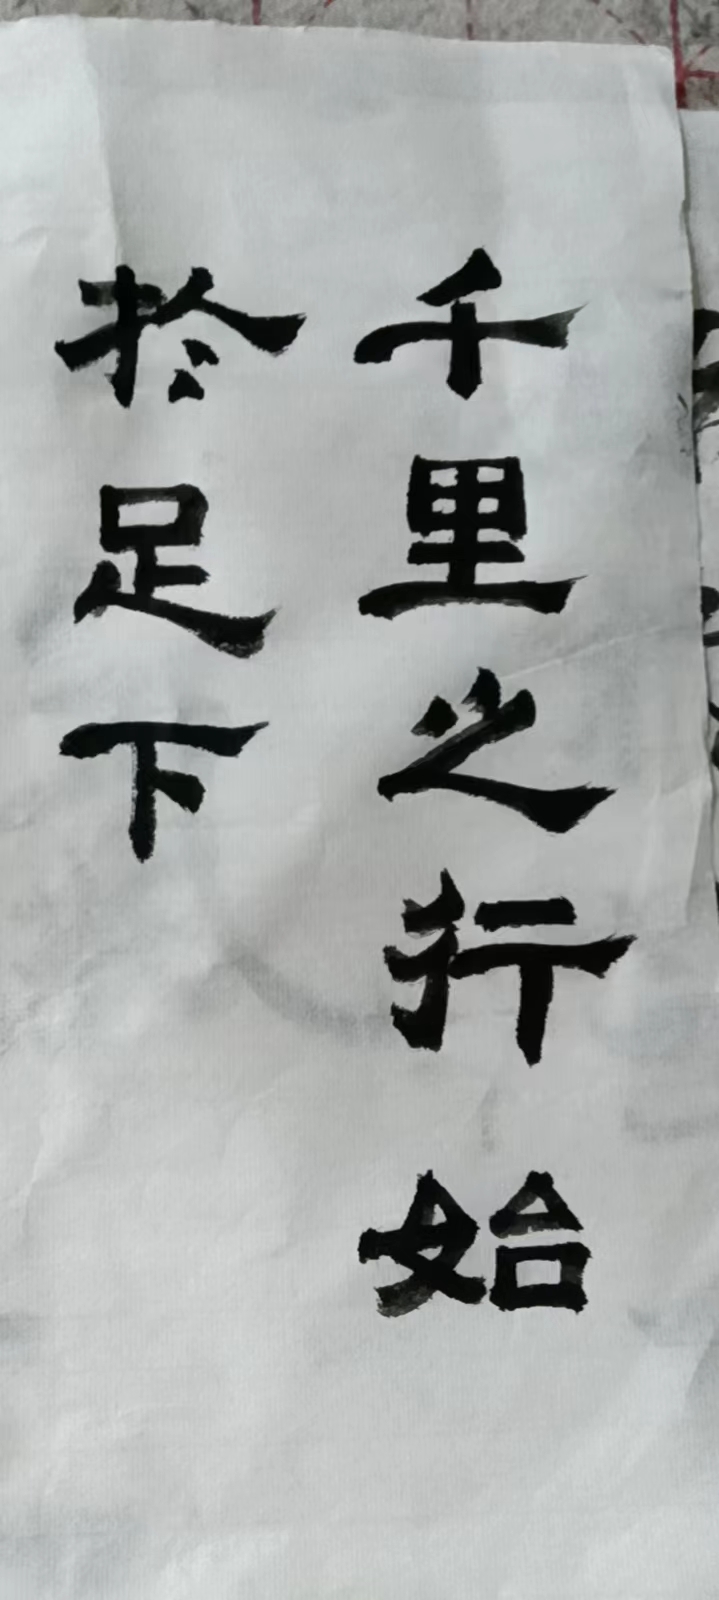 千里之行始
於足下